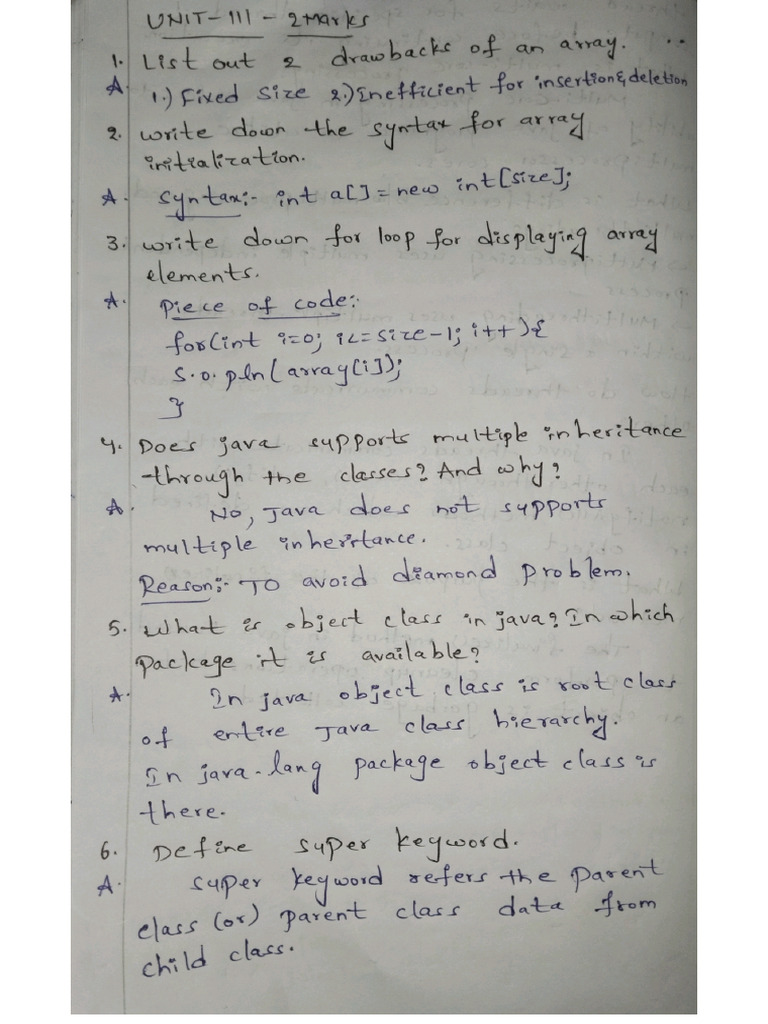 UNIT-III - 2 Marks
1. List out 2 drawbacks of an array.
A. 1.) Fixed size 2.) Inefficient for insertion & deletion
2. write down the syntax for array
initialization.
A. Syntax:- int a[] = new int[size];
3. write down for loop for displaying array
elements.
A. Piece of code:-
for(int i=0; i<=size-1; i++){
S.o.pln(array[i]);
}
4. Does java supports multiple inheritance
through the classes? And why?
A. No, Java does not supports
multiple inheritance.
Reason:- To avoid diamond problem.
5. What is object class in java? In which
package it is available?
A. In java object class is root class
of entire Java class hierarchy.
In java.lang package object class is
there.
6. Define super keyword.
A. super keyword refers the parent
class (or) parent class data from
child class.